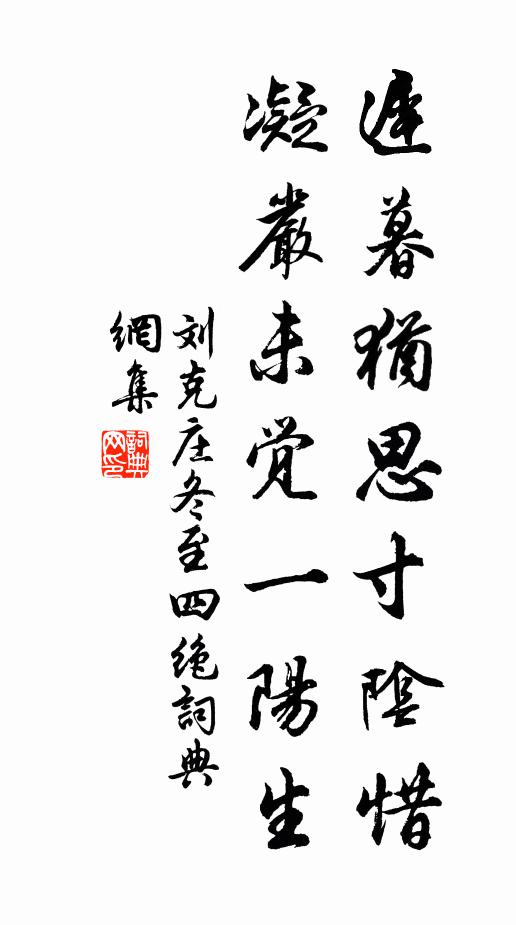 遲暮猶思寸陰惜
凝嚴未覺一陽生
刘克庄冬至四绝詞典
網集
詞典
网印